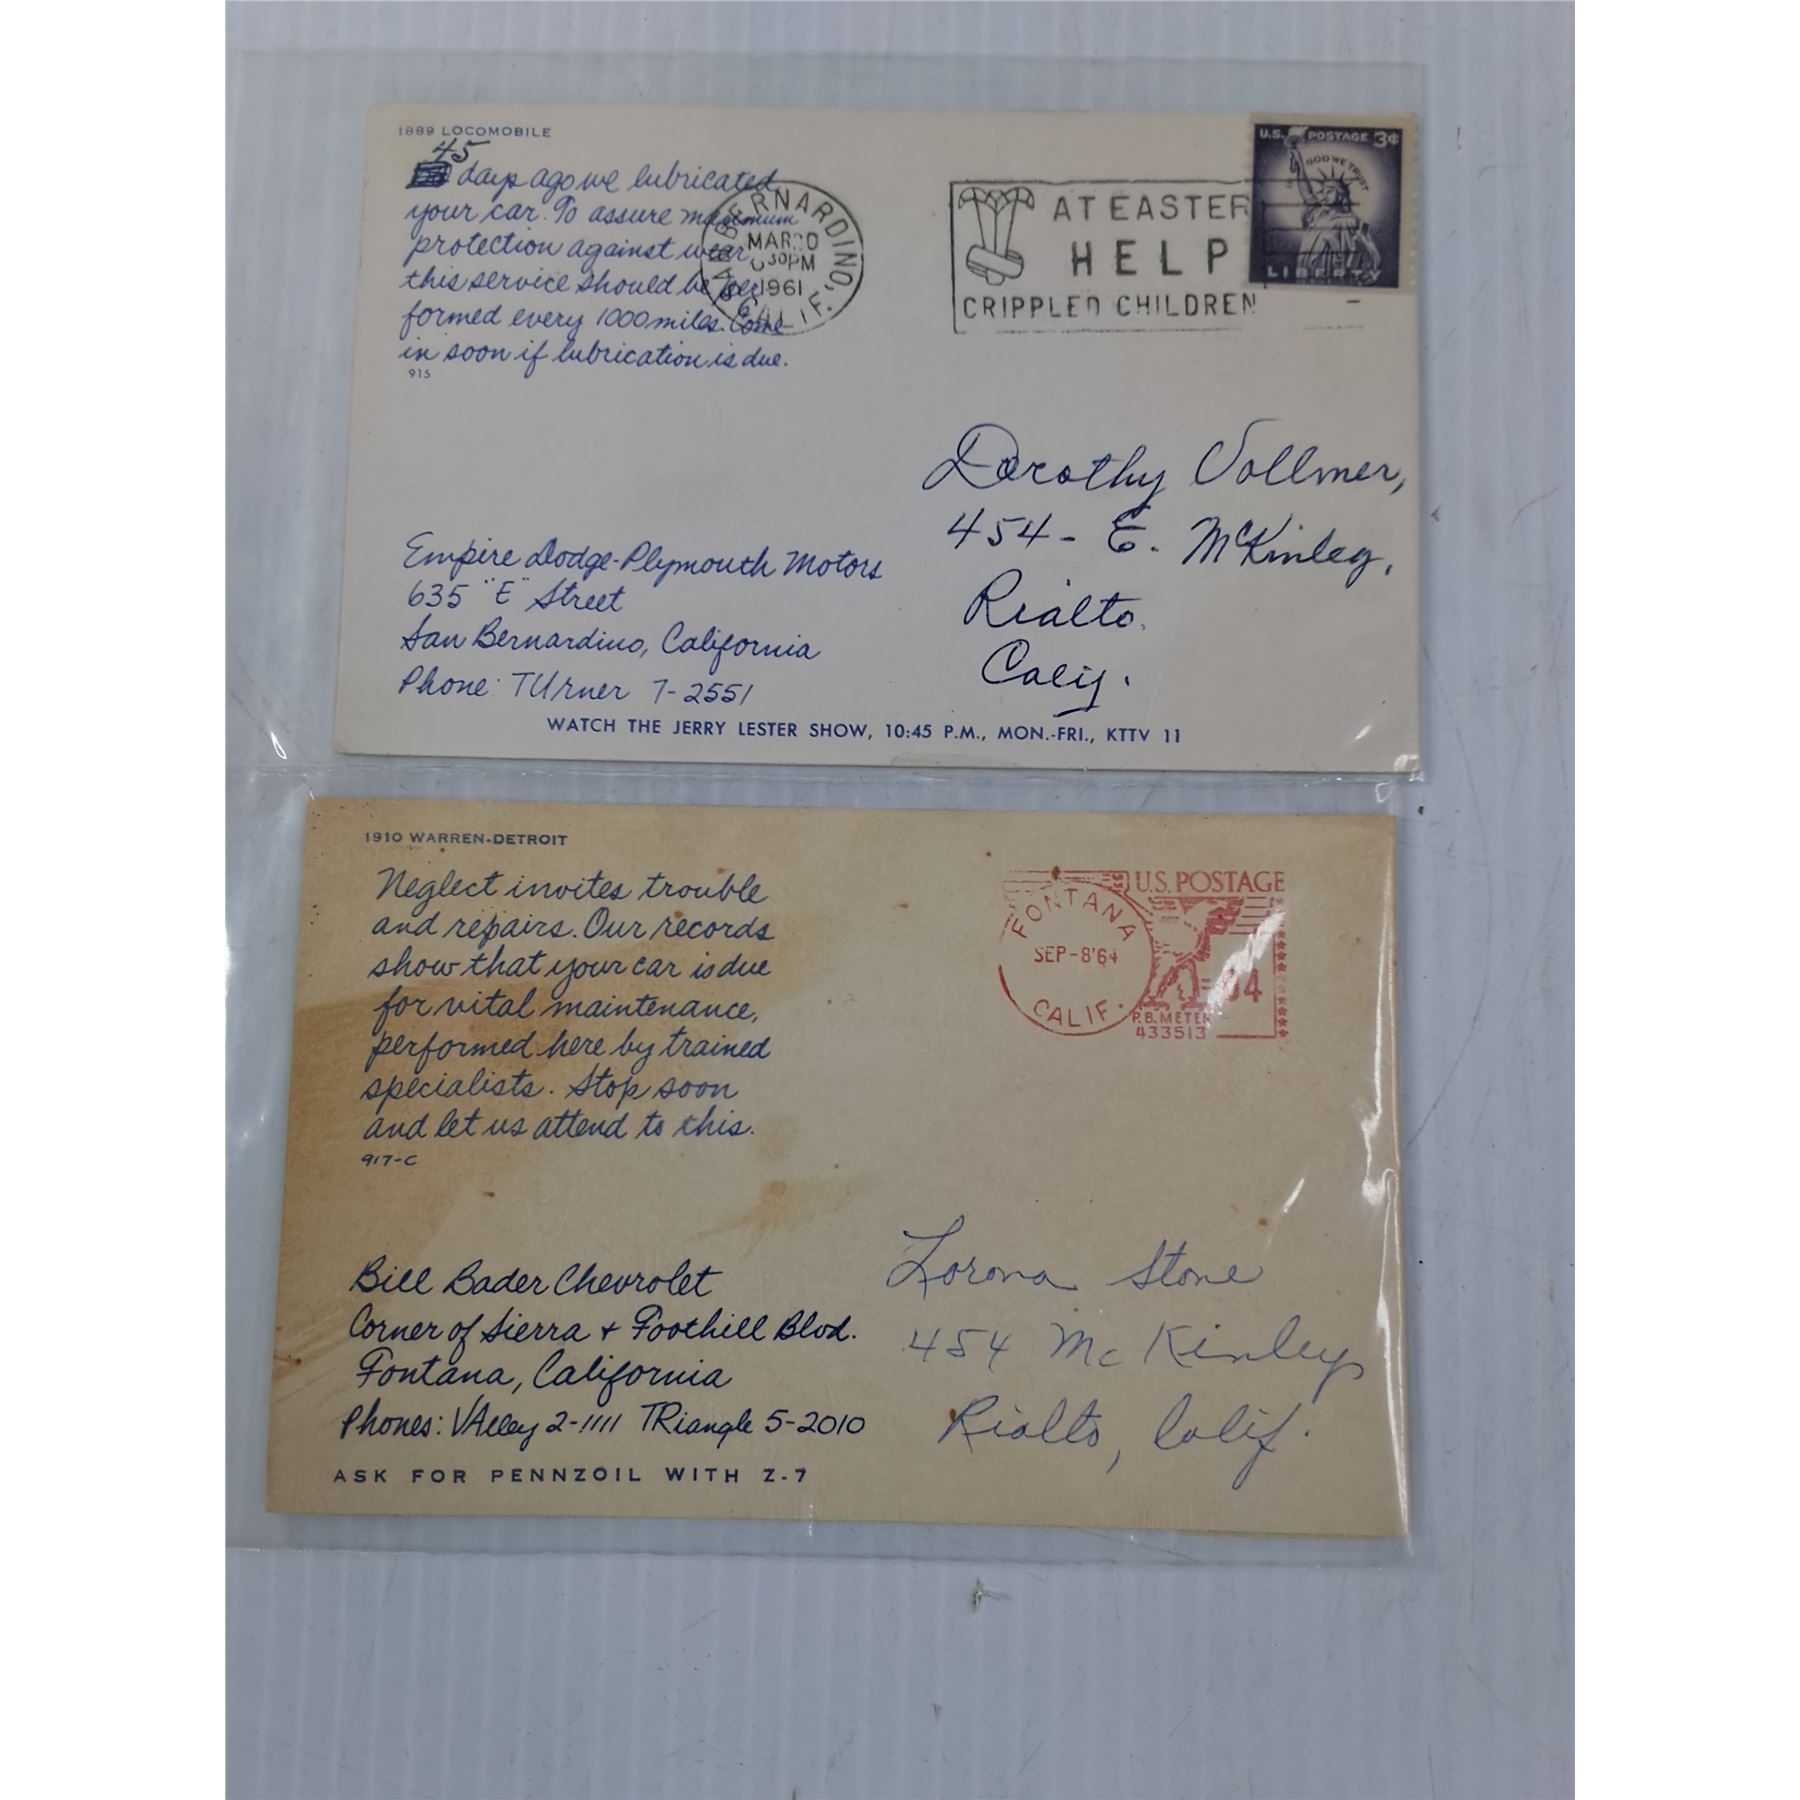 1889 LOCOMOBILE
45
days ago we lubricated
your car. To assure maximum
protection against wear
this service should be per
formed every 1000 miles. Come
in soon if lubrication is due.
915
SAN BERNARDINO, CALIF.
MAR 20
30 PM
1961
AT EASTER
HELP
CRIPPLED CHILDREN
U.S. POSTAGE 3¢
IN GOD WE TRUST
LIBERTY
Dorothy Vollmer,
454 - E. McKinley,
Rialto.
Calif.
Empire Dodge-Plymouth Motors
635 "E" Street
San Bernardino, California
Phone: TUrner 7-2551
WATCH THE JERRY LESTER SHOW, 10:45 P.M., MON.-FRI., KTTV 11
1910 WARREN-DETROIT
Neglect invites trouble
and repairs. Our records
show that your car is due
for vital maintenance,
performed here by trained
specialists. Stop soon
and let us attend to this.
917-C
FONTANA
SEP-8'64
CALIF.
U.S. POSTAGE
04
P.B. METER
433513
Bill Bader Chevrolet
Corner of Sierra + Foothill Blvd.
Fontana, California
Phones: VAlley 2-1111 TRiangle 5-2010
ASK FOR PENNZOIL WITH Z-7
Lorona Stone
454 Mc Kinley
Rialto, Calif.